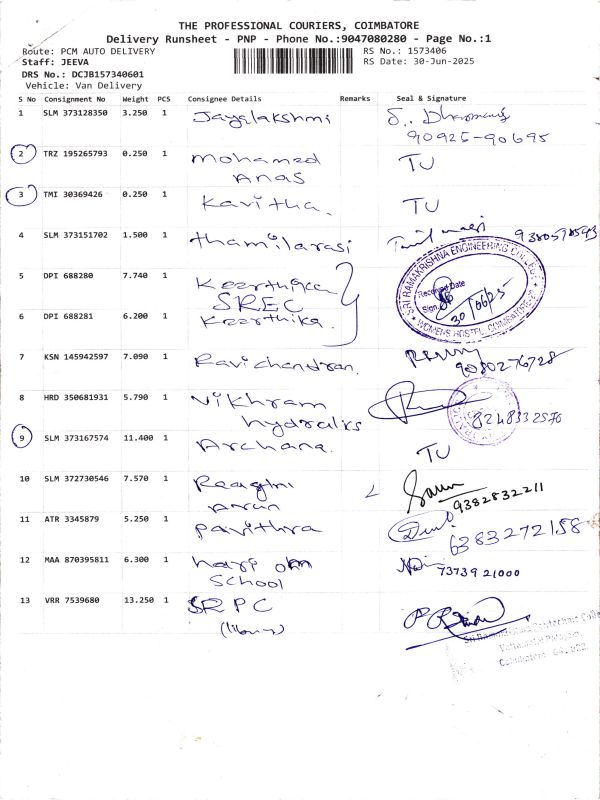 THE PROFESSIONAL COURIERS, COIMBATORE
Delivery Runsheet - PNP - Phone No.:9047080280 - Page No.:1
Route: PCM AUTO DELIVERY RS No.: 1573406
Staff: JEEVA RS Date: 30-Jun-2025
DRS No.: DCJB157340601
Vehicle: Van Delivery
S No Consignment No Weight PCS Consignee Details Remarks Seal & Signature
1 SLM 373128350 3.250 1 Jayalakshmi
90925-90695
2 TRZ 195265793 0.250 1 Mohamed TU
Anas
3 TMI 30369426 0.250 1 Kavitha. TU
4 SLM 373151702 1.500 1 thamilarasi
5 DPI 688280 7.740 1 Keerthika
SREC
6 DPI 688281 6.200 1 Keerthika.
SRI RAMAKRISHNA ENGINEERING COLLEGE
Received Date
Sign
30/06/25
WOMENS HOSTEL, COIMBATORE
7 KSN 145942597 7.090 1 Ravichandran. 9080276728
8 HRD 350681931 5.790 1 Nikhram 8248332576
hydralics
9 SLM 373167574 11.400 1 Archana. TU
10 SLM 372730546 7.570 1 9382832211
Arun
11 ATR 3345879 5.250 1 Pavithra 6383272158
12 MAA 870395811 6.300 1 hari om 7373921000
School
13 VRR 7539680 13.250 1 SRPC